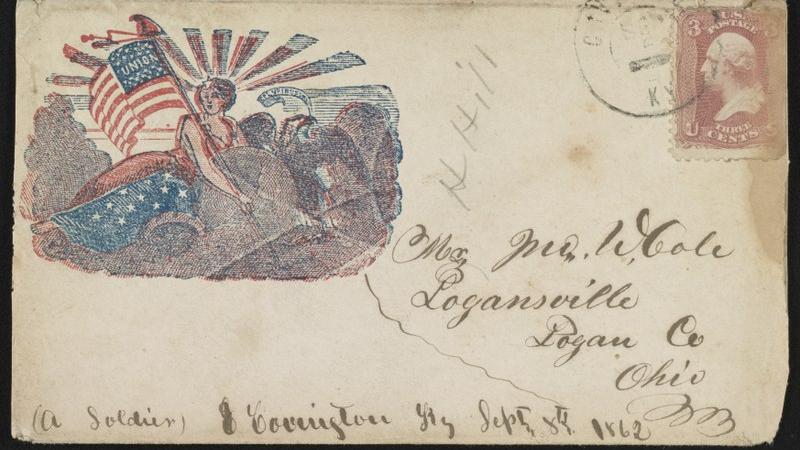 UNION
3 U.S. 3
POSTAGE
U S
THREE
CENTS
KY
H Hill
Mr Jno. W. Cole
Logansville
Logan Co
Ohio
(A Soldier) Covington Ky Sept, 8th. 1862